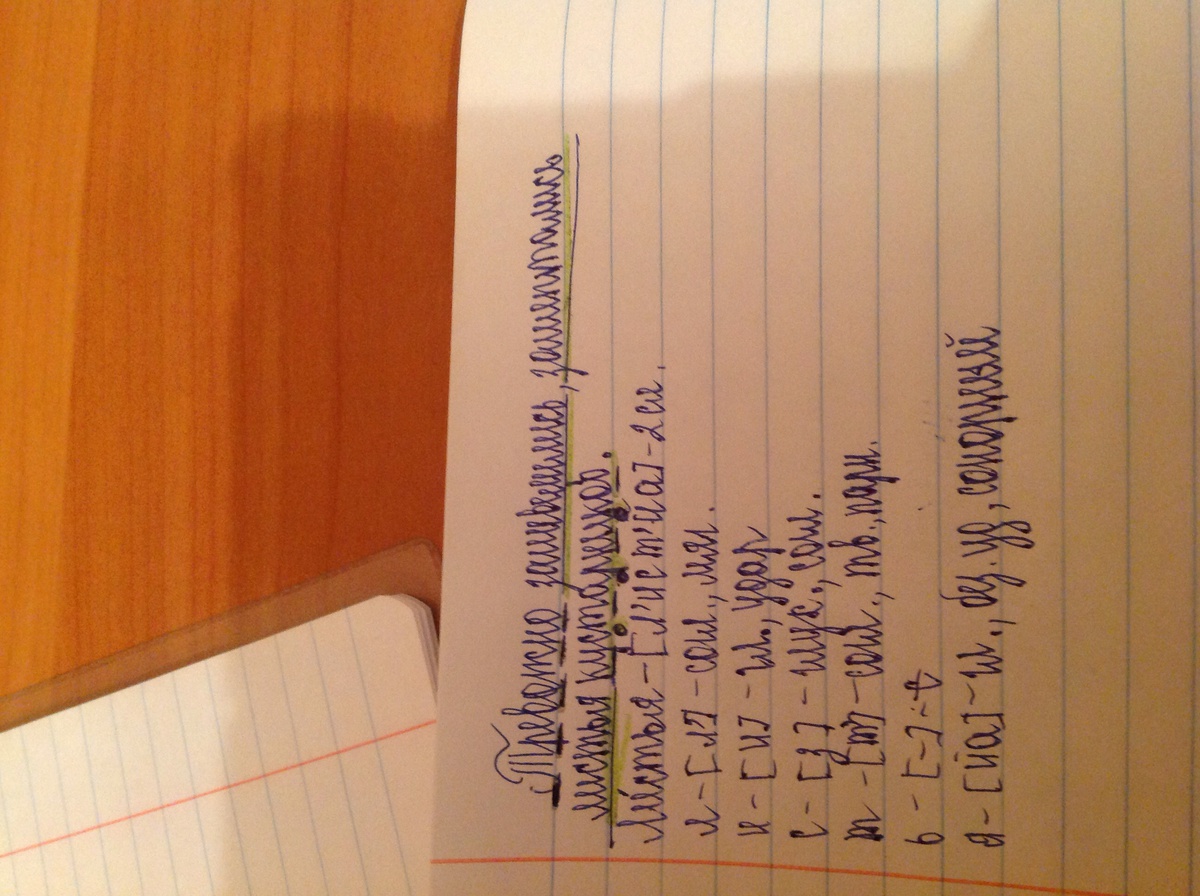 Тревожно зашевелились, зашептались
листья кустарников.
Листья - [л'ист'иа] - 2 сл.
л - [л'] - согл., мяг.
и - [и] - гл., удар
с - [з] - глух., согл.
т - [т] - согл., тв., парн.
ь - [-] -
я - [йа] - гл., без. уд, сонорный